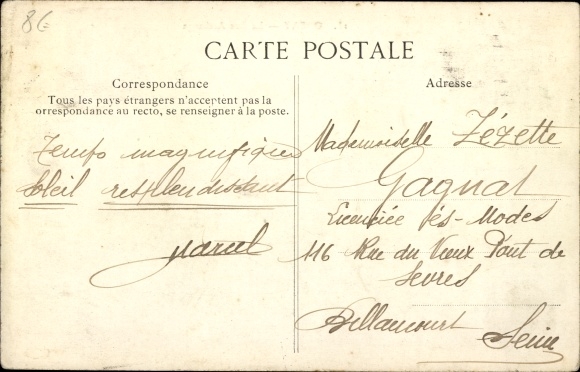 86
CARTE POSTALE
Correspondance
Tous les pays étrangers n'acceptent pas la
orrespondance au recto, se renseigner à la poste.
Temps magnifique
Soleil resplendissant
Marcel
Adresse
Mademoiselle Zézette
Gagnat
Licenciée ès-Modes
116 Rue du Vieux Pont de
Sevres
Billancourt Seine